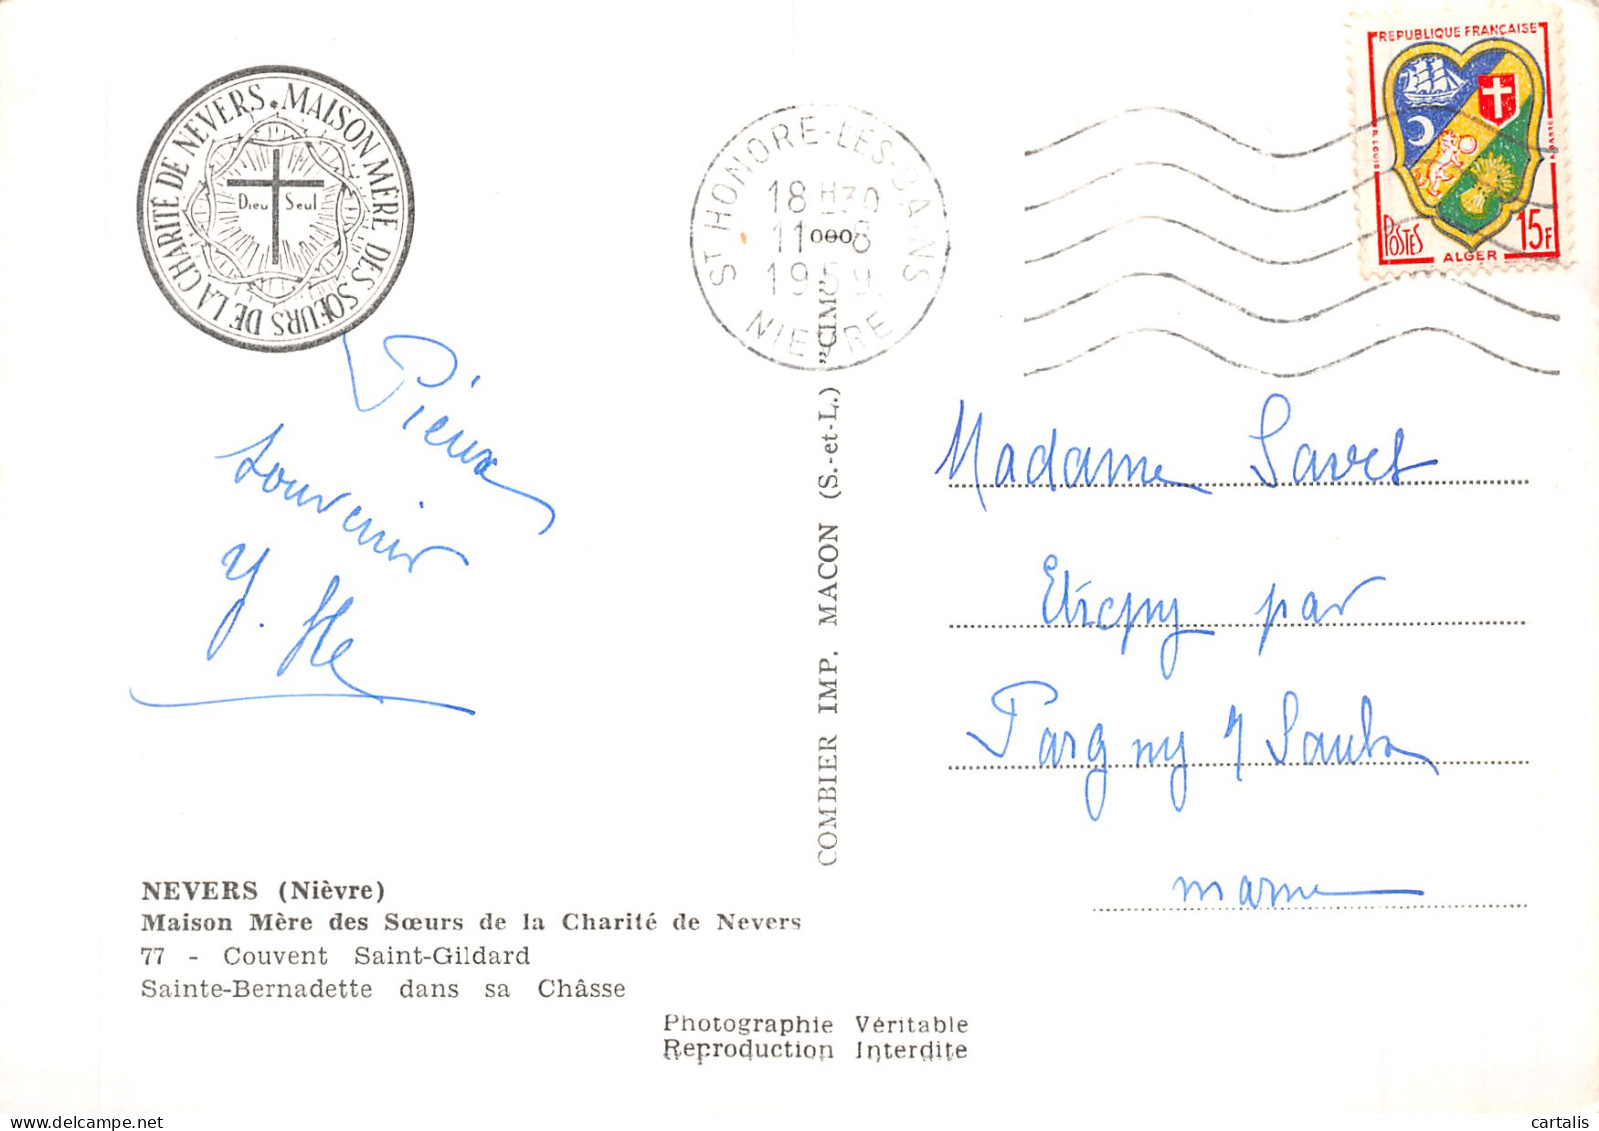 MAISON MÈRE DES SŒURS DE LA CHARITÉ DE NEVERS.
Dieu Seul
ST HONORE-LES-BAINS
18 H30
11
1959
NIEVRE
REPUBLIQUE FRANÇAISE
POSTES
15F
ALGER
Pieux
souvenir
Madame Savet
par
Pargny s/ Saulx
marne
COMBIER IMP. MACON (S.-et-L.) "CIM"
NEVERS (Nièvre)
Maison Mère des Sœurs de la Charité de Nevers
77 - Couvent Saint-Gildard
Sainte-Bernadette dans sa Châsse
Photographie Véritable
Reproduction Interdite
cartalis